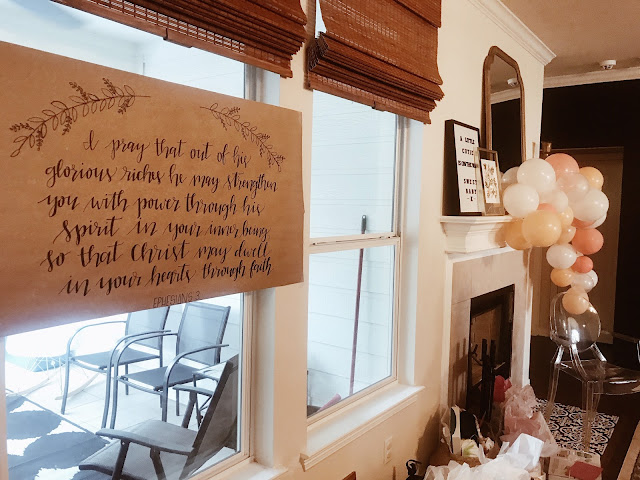 I pray that out of his
glorious riches he may strengthen
you with power through his
spirit in your inner being
so that Christ may dwell
in your hearts through faith
EPHESIANS 3
A LITTLE
CUTIE
IS ON THE WAY
SWEET
BABY
K